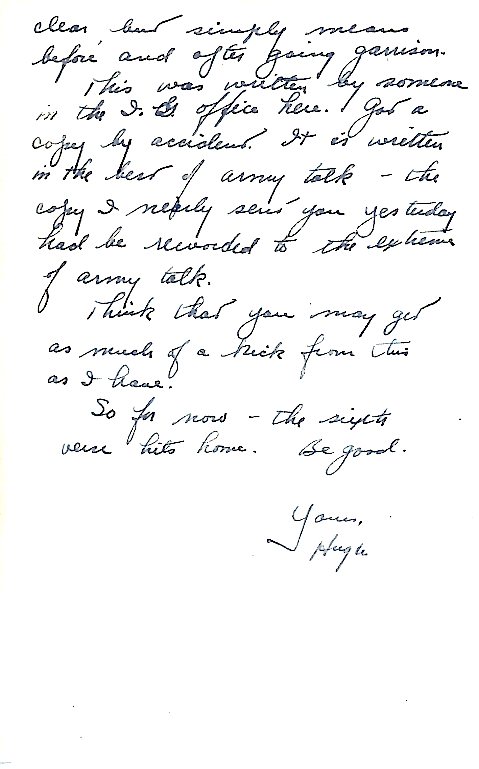 clear but simply means
before and after going garrison.
This was written by someone
in the I. G office here. Got a
copy by accident. It is written
in the best of army talk - the
copy I nearly sent you yesterday
had be reworded to the extreme
of army talk.
Think that you may get
as much of a kick from this
as I have.
So for now - the sixth
verse hits home. Be good.
Yours,
Hugh